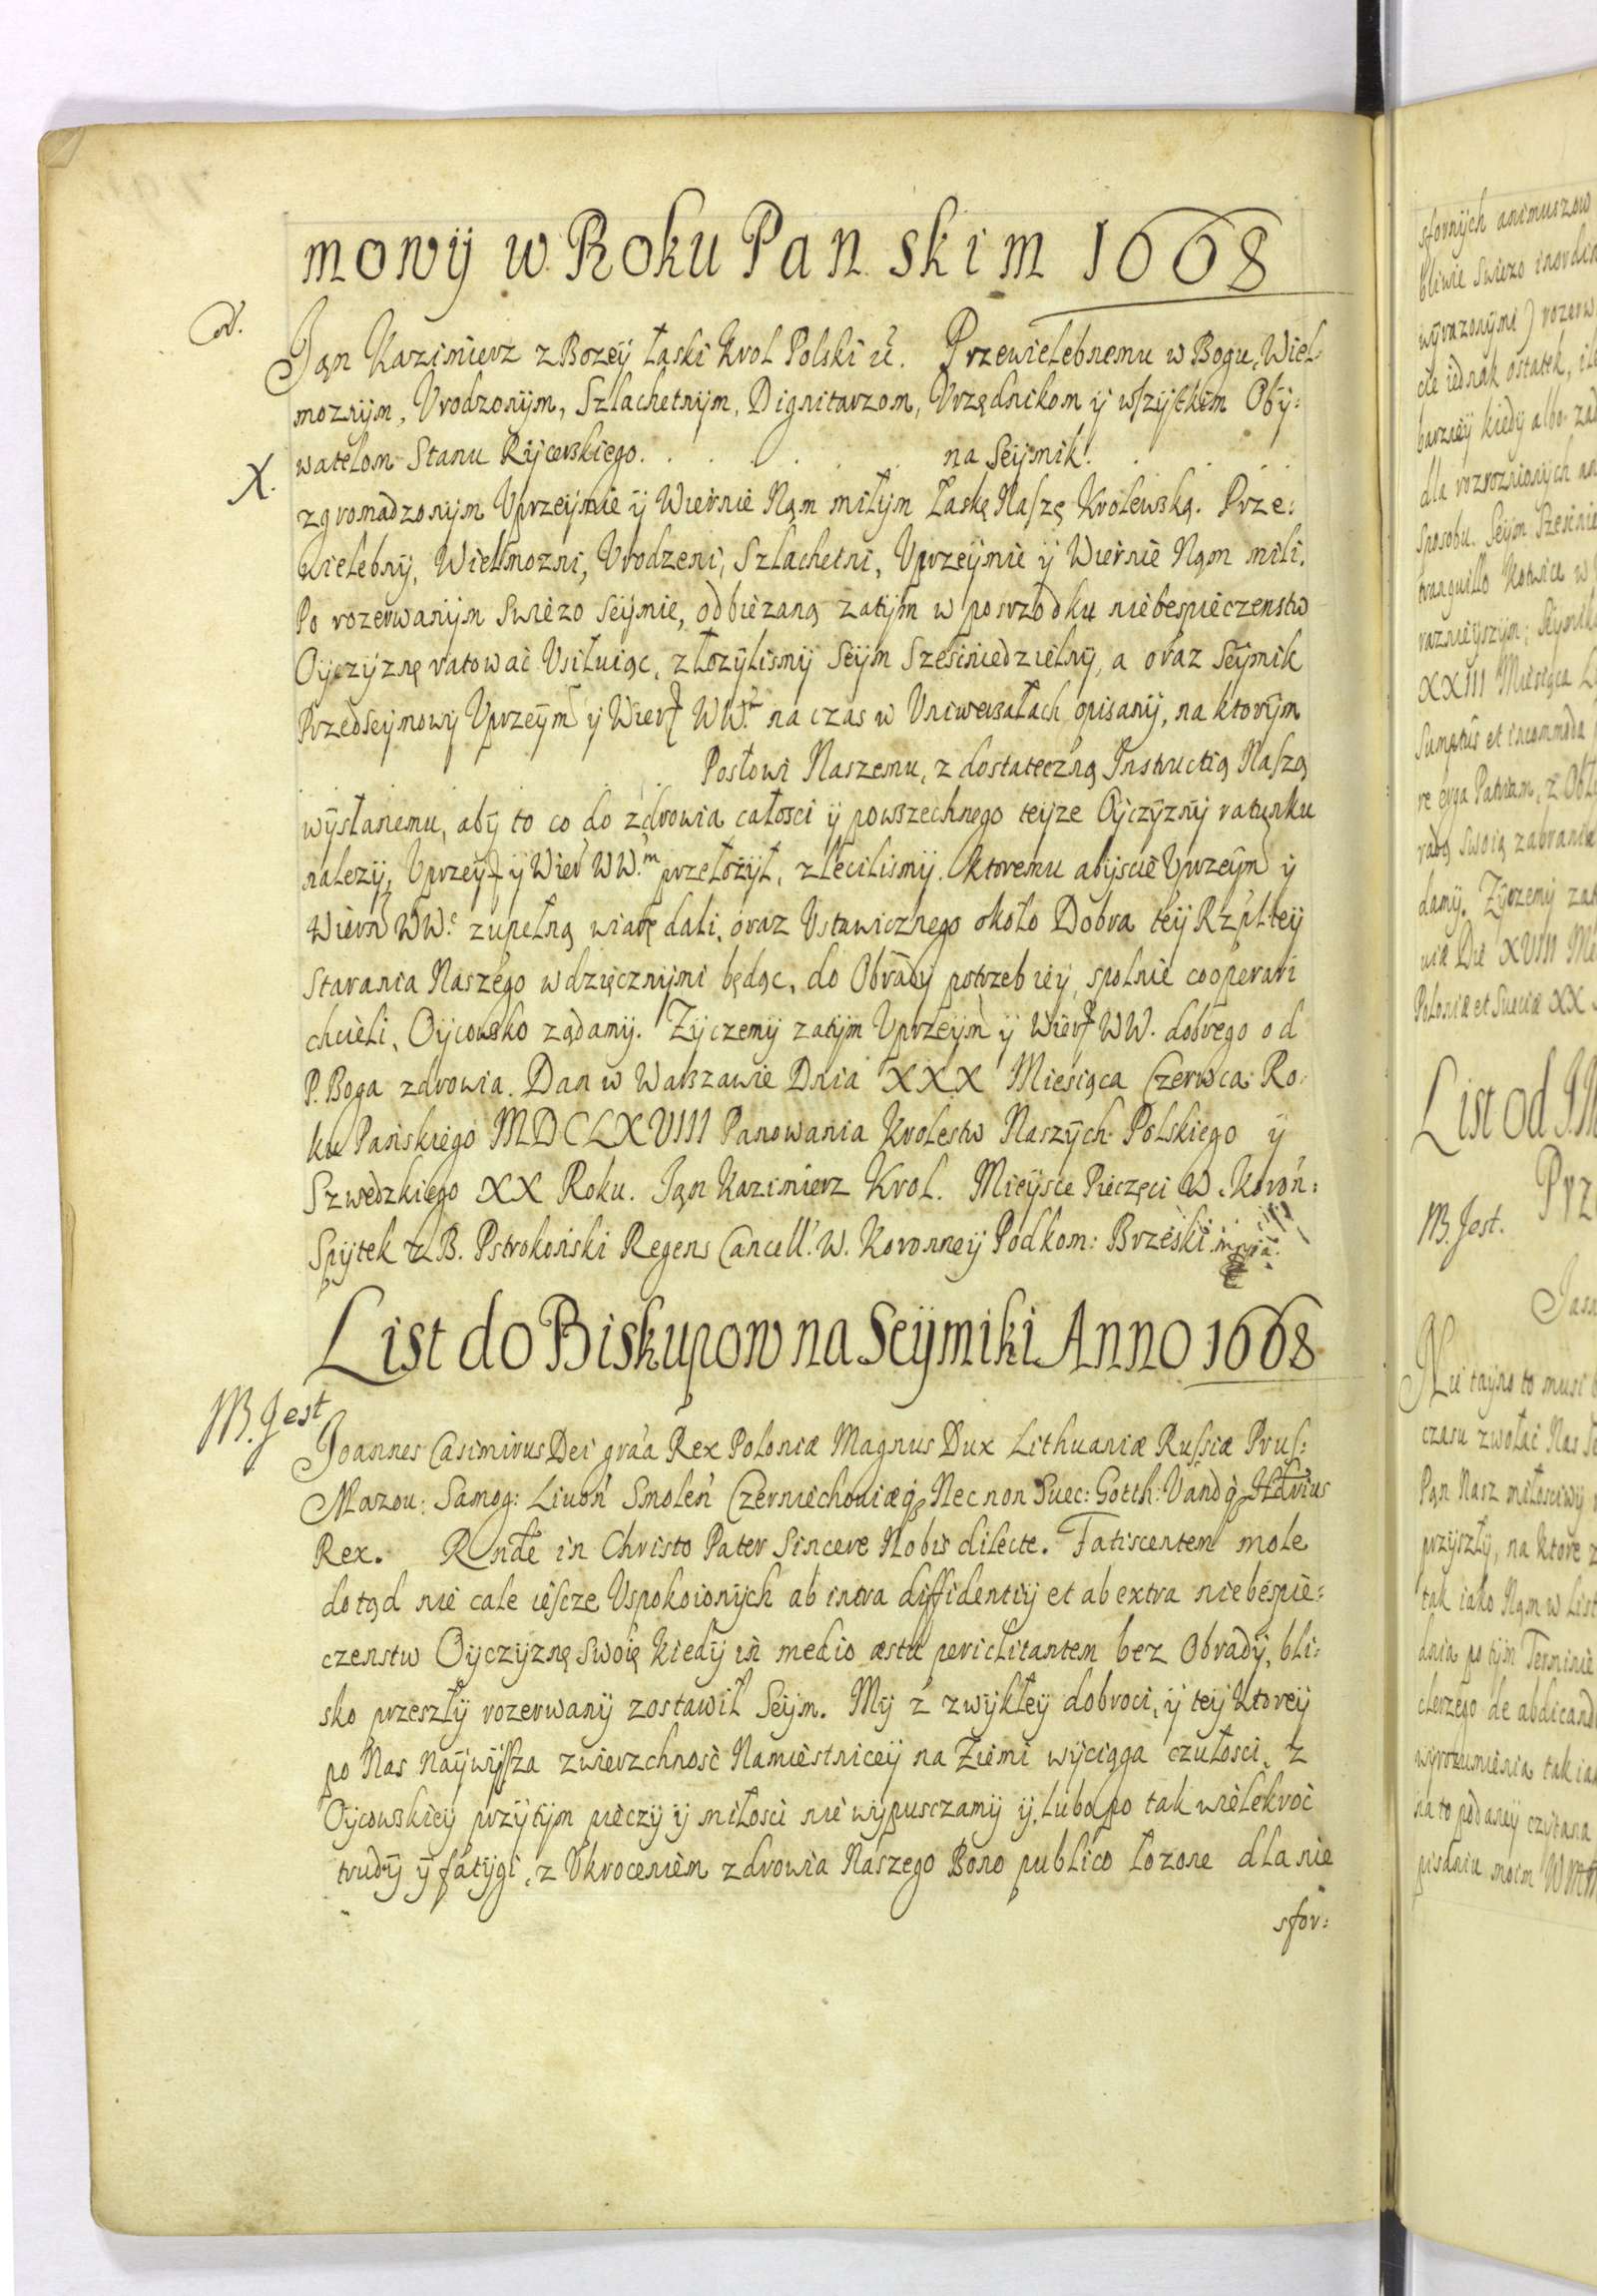 mowy w Roku Panskim 1668
Jąn Kazimierz z Bozey łaski Krol Polski &c. Przewielebnemu w Bogu, Wiel:
moznym, Vrodzonym, Szlachetnym, Dignitarzom, Vrzędnikom y wszystkim Oby:
X. watelom Stanu Rycerskiego. . . . . . na Seymik. . . . .
zgromadzonym Vprzeymie y Wiernie Nąm miłym Łaskę Naszę Krolewską. Prze:
wielebny, Wielmozni, Vrodzeni, Szlachetni, Vprzeymie y Wiernie Nąm mili.
Po rozerwanym Swiezo Seymie, odbiezaną zatym w posrzodku niebespieczenstw
Oyczyznę ratować Vsiłuiąc, złozylismy Seym Szescniedzielny, a oraz Seymik
Przedseymowy Vprzeym y Wier WW. na czas w Vniwersałach opisany, na ktorym
. . . . . Posłowi Naszemu, z dostateczną Instructią Naszą
wysłanemu, aby to co do zdrowia całosci y powszechnego teyze Oyczyzny ratunku
nalezy, Vprzey y Wier WW.m przełozył, zlecilismy. ktoremu abyscie Vprzeym y
Wiern WW.e zupełną wiarę dali, oraz Vstawicznego około Dobra tey Rzpltey
starania Naszego wdzięcznymi będąc, do Obrady potrzebney, spolnie cooperari
chcieli, Oycowsko ządamy. Zyczemy zatym Vprzeym y Wier WW. dobrego od
P. Boga zdrowia. Dan w Warszawie Dnia XXX Miesiąca Czerwca Ro:
ku Pańskiego MDCLXVIII Panowania Krolestw Naszych Polskiego y
Szwedzkiego XX Roku. Jąn Kazimierz Krol. Mieysce Pieczęci W. Koroń:
Spytek z B. Pstrokoński Regens Cancell. W. Koronney Podkom: Brzeski mpria.
List do Biskupow na Seymiki Anno 1668
M. Jest
Joannes Casimirus Dei gra'a Rex Poloniæ Magnus Dux Lithuaniæ Russiæ Prus:
Mazou: Samog: Liuoń Smoleń Czerniechouiæq Necnon Suec: Gotth: Vandoq Hdrius
Rex. Rnde in Christo Pater Sincere Nobis dilecte. Fatiscentem mole
dotąd nie cale iescze Vspokoionych ab intra diffidentiy et ab extra niebespie:
czenstw Oyczyznę swoię kiedy in medio æstu periclitantem bez Obrady, bli:
sko przeszły rozerwany zostawił Seym. My z zwykłey dobroci, y tey ktorey
po Nas Naywyssza zwierzchność Namiestniczey na Ziemi wyciąga czułosci, z
Oycowskiey przytym pieczy y miłosci nie wypusczamy y, lubo po tak wielekroć
trudy y fatygi, z Vkroceniem zdrowia Naszego Bono publico łozone dla nie
sfor:
sfornych animuszow
bliwie Swiezo
wyrazonymi) rozerw
cie iednak ostatek,
barziey kiedy albo
dla rozroznionych
sposobu. Seym Szescnie
tranquillo
XXIII Miesiąca
Sumptus et incommoda
re erga Patriam, z
radą swoią
damy. Zyczemy zat
Die XVIII
Poloniæ et Sueciæ XX
List od
M. Jest. Prz
Jasn
Nie tayno to musi
czasu zwołać Nas
Pąn Nasz miłosciwy
przyszły, na ktore z
tak iako Nąm w List
dnia po tym Terminie
de abdicand
wyrozumienia tak
na to podaney czytana
pisaniu moim